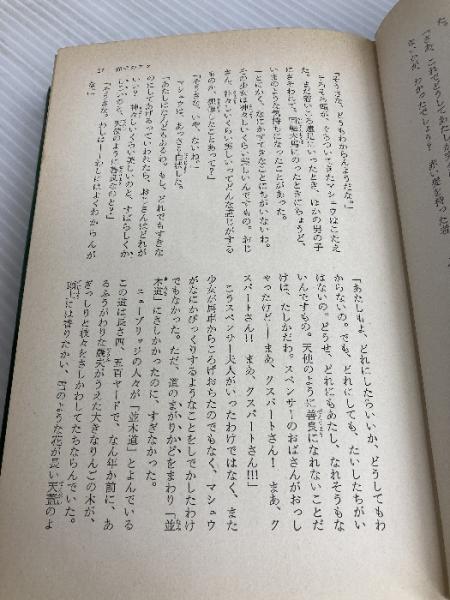 た。
「さあ、これでどうして
「そうさな、どうもわからんようだな。」
そろそろ頭が、ぐらついてきたマシュウはこたえ
た。まだ若いころ遠足にいったとき、ほかの男の子
にさそわれて、回転木馬にのったときにちょうど、
いまのような気持ちになったことがあった。
「とにかく、なにかすてきなことにちがいないわ。
その少女は神々しいくらい美しいんですもの。おじ
さん、神々しいくらい美しいってどんな感じがする
ものか、想像したことあって？」
「そうさな、いや、ないね。」
マシュウは、あっさり白状した。
「あたしはなんどもあるわ。もし、どれでもすきな
のにしてあげるっていわれたら、おじさんはどれが
いい？　神々しいくらい美しいのと、すばらしくか
しこいのと、天使のように善良なのとで？」
「そうさな、わしは——わしにはよくわからんが
な。」
「あたしもよ、どれにしたらいいか、どうしてもわ
からないの。でも、どれにしても、たいしたちがい
はないの。どうせ、どれにもあたし、なれそうもな
いんですもの。天使のように善良になれないことだ
けは、たしかだわ。スペンサーのおばさんがおっし
ゃったけど——まあ、クスバートさん！　まあ、ク
スバートさん!!　まあ、クスバートさん!!!」
こうスペンサー夫人がいったわけではなく、また
少女が馬車からころげおちたのでもなく、マシュウ
がなにかびっくりするようなことをしでかしたわけ
でもなかった。ただ、道のまがりかどをまわり「並
木道」にさしかかったのに、すぎなかった。
ニューブリッジの人々が「並木道」とよんでいる
この道は長さ四、五百ヤードで、なん年か前に、あ
るふうがわりな農夫がうえた大きなりんごの木が、
ぎっしりと枝々をさしかわしてたちならんでいた。
頭上には香りたかい、雪のような花が長い天蓋のよ